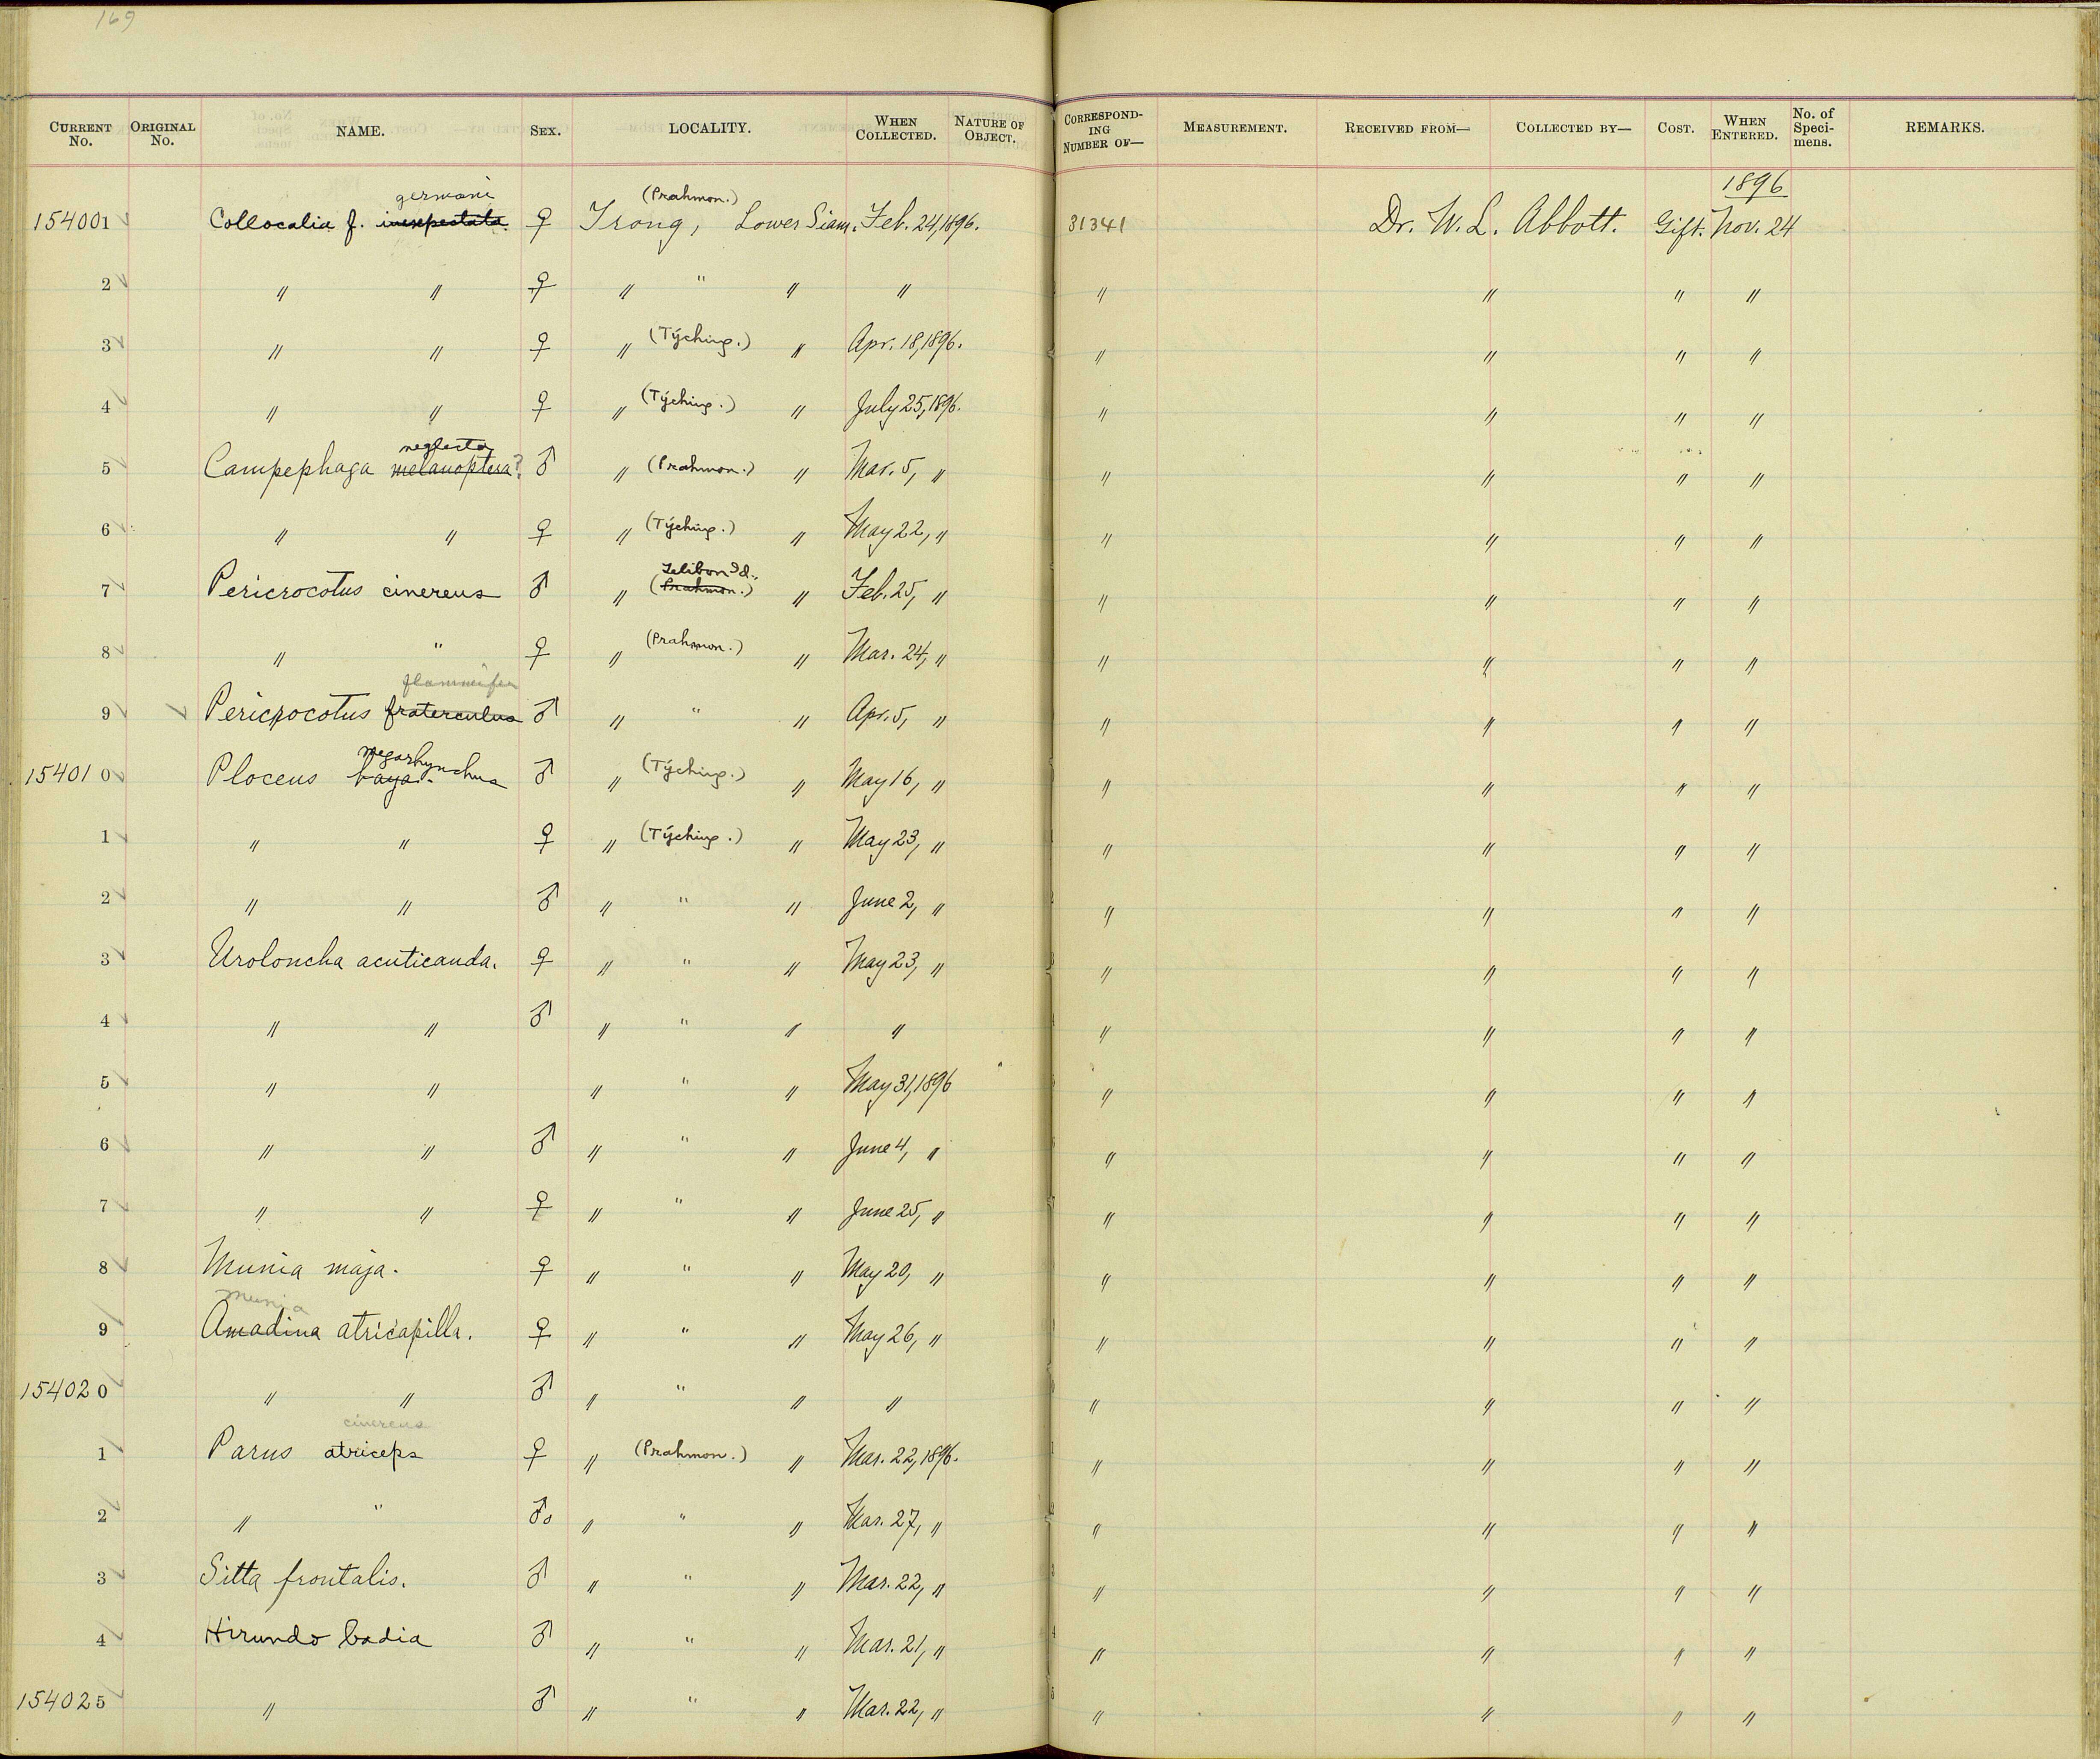 169
CURRENT No. ORIGINAL No. NAME. SEX. LOCALITY. WHEN COLLECTED. NATURE OF OBJECT. CORRESPONDING NUMBER OF— MEASUREMENT. RECEIVED FROM— COLLECTED BY— COST. WHEN ENTERED. No. of Specimens. REMARKS.
germani (Prahmon.) 1896
154001 Collocalia f. inexpectata. ♀ Trong, Lower Siam. Feb. 24, 1896. 31341 Dr. W. L. Abbott. Gift. Nov. 24
2 " " ♀ " " " " " " " "
3 " " ♀ " (Týching.) " Apr. 18, 1896. " " " "
4 " " ♀ " (Týching.) " July 25, 1896. " " " "
neglecta
5 Campephaga melanoptera? ♂ " (Prahmon.) " Mar. 5, " " " " "
6 " " ♀ " (Týching.) " May 22, " " " " "
Telibon Id.,
7 Pericrocotus cinereus ♂ " (Prahmon.) " Feb. 25, " " " " "
8 " " ♀ " (Prahmon.) " Mar. 24, " " " " "
flammifer
9 Pericrocotus fraterculus ♂ " " " Apr. 5, " " " " "
megarhynchus
154010 Ploceus baya. ♂ " (Týching.) " May 16, " " " " "
1 " " ♀ " (Týching.) " May 23, " " " " "
2 " " ♂ " " " June 2, " " " " "
3 Uroloncha acuticauda. ♀ " " " May 23, " " " " "
4 " " ♂ " " " " " " " "
5 " " " " " May 31, 1896 " " " "
6 " " ♂ " " " June 4, " " " " "
7 " " ♀ " " " June 25, " " " " "
8 Munia maja. ♀ " " " May 20, " " " " "
munia
9 Amadina atricapilla. ♀ " " " May 26, " " " " "
154020 " " ♂ " " " " " " " "
cinereus
1 Parus atriceps ♀ " (Prahmon.) " Mar. 22, 1896. " " " "
2 " " ♂o " " " Mar. 27, " " " " "
3 Sitta frontalis. ♂ " " " Mar. 22, " " " " "
4 Hirundo badia ♂ " " " Mar. 21, " " " " "
154025 " ♂ " " " Mar. 22, " " " " "